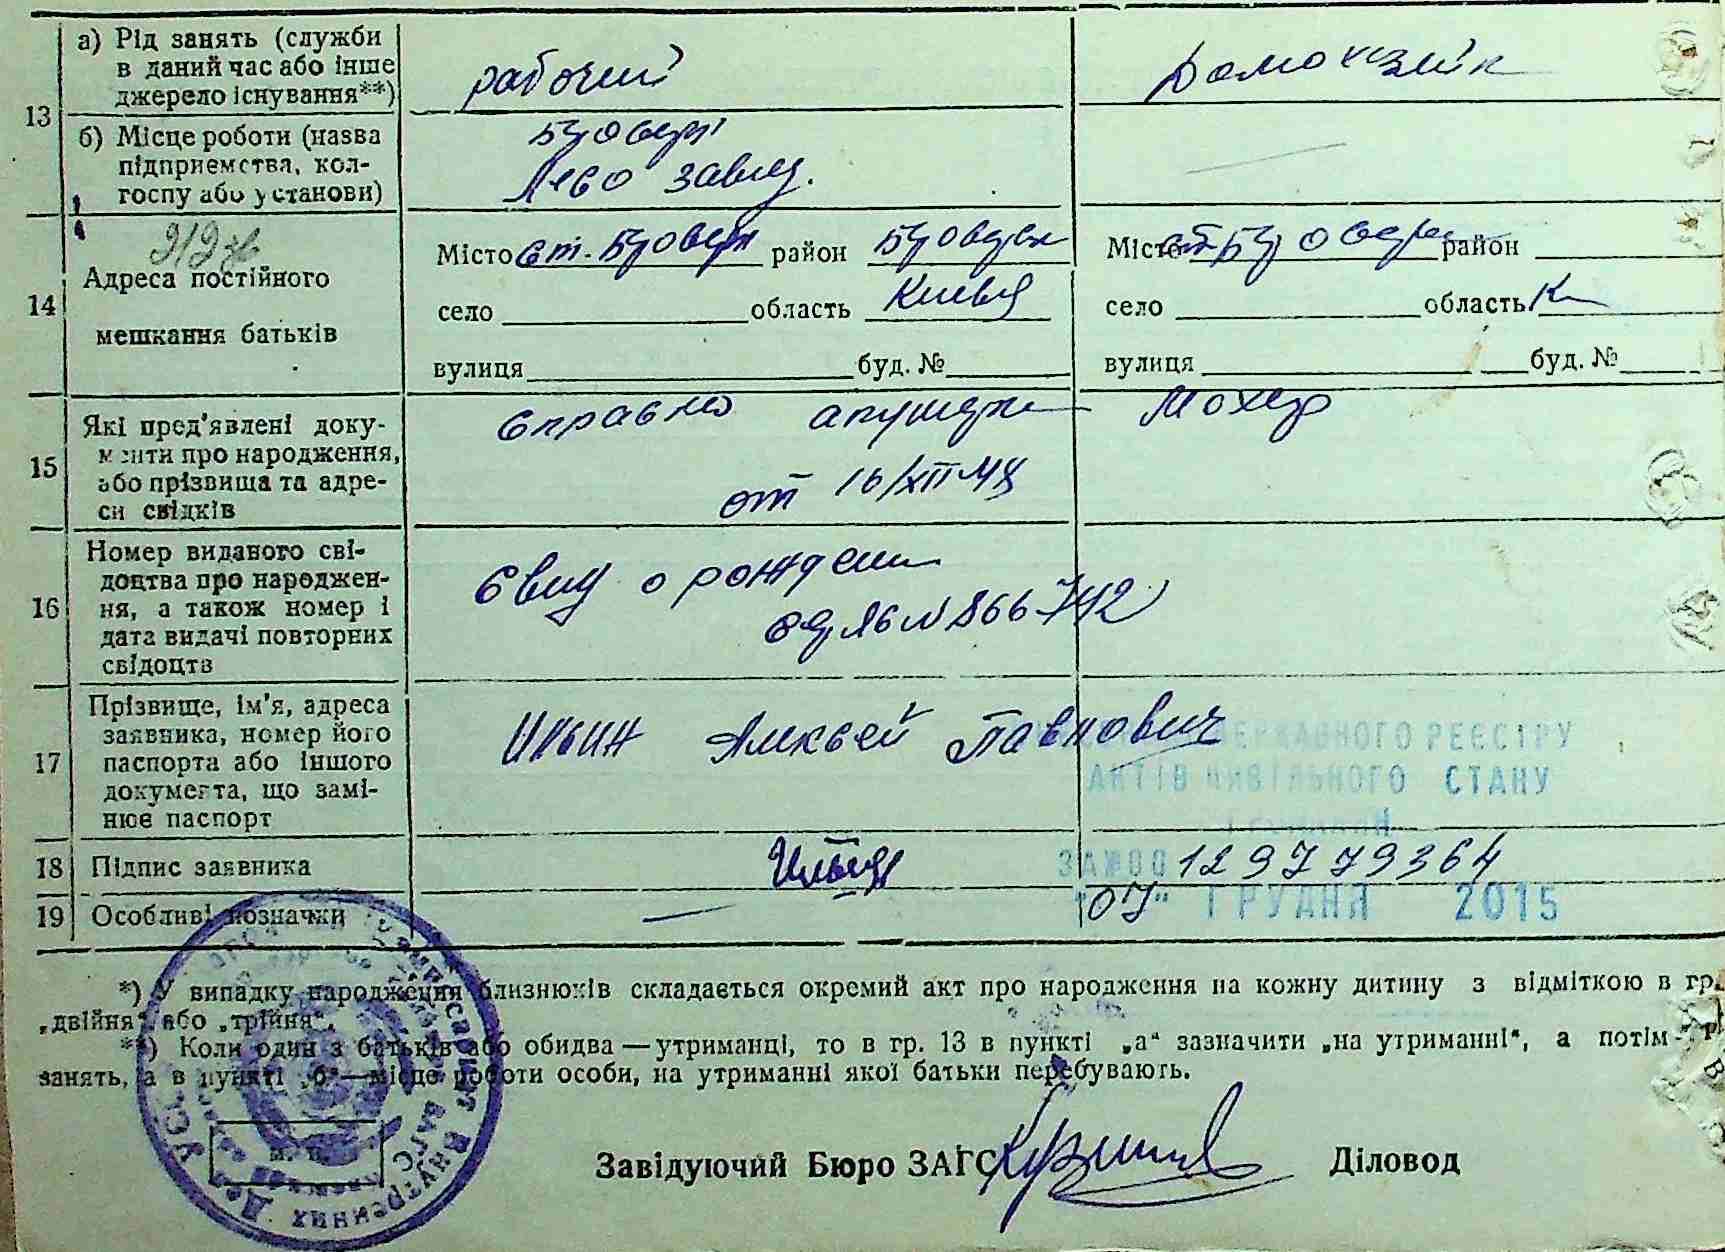 13
а) Рід занять (служби
в даний час або інше
джерело існування**)
рабочий
Домохозяйк
б) Місце роботи (назва
підприємства, кол-
госпу або установи)
Бровари
завод.
14
Адреса постійного
мешкання батьків
Місто ст. Бровари район
Місто ст. Бровари район
село область Киевск
село область К
вулиця буд. №
вулиця буд. №
15
Які пред'явлені доку-
менти про народження,
або прізвища та адре-
си свідків
справка акушерки
от 16/XII
16
Номер виданого сві-
доцтва про народжен-
ня, а також номер і
дата видачі повторних
свідоцтв
о рождении
N 866742
17
Прізвище, ім'я, адреса
заявника, номер його
паспорта або іншого
документа, що замі-
нює паспорт
Ильин Алексей Павлович
ДЕРЖАВНОГО РЕЄСТРУ
АКТІВ ЦИВІЛЬНОГО СТАНУ
ГРОМАДЯН
18
Підпис заявника
Ильин
129779364
19
Особливі позначки
—
"07" ГРУДНЯ 2015
*) У випадку народження близнюків складається окремий акт про народження на кожну дитину з відміткою в гр.
„двійня“ або „трійня“.
**) Коли один з батьків або обидва — утриманці, то в гр. 13 в пункті „а“ зазначити „на утриманні“, а потім —
занять, а в пункті „б“ — місце роботи особи, на утриманні якої батьки перебувають.
М. П.
Завідуючий Бюро ЗАГС
Діловод